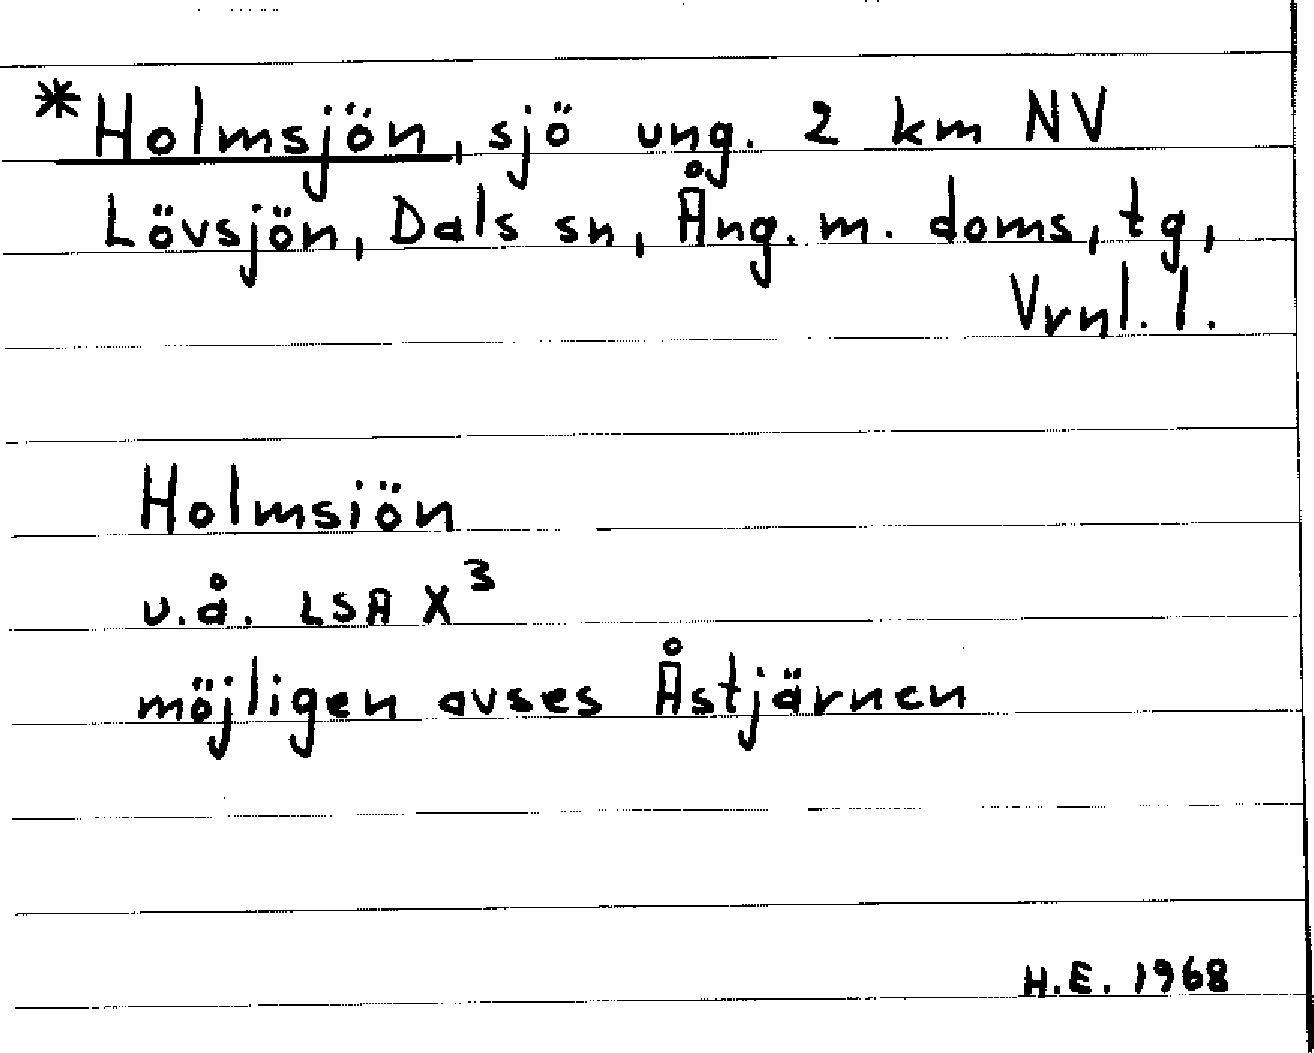 *Holmsjön, sjö ung. 2 km NV
Lövsjön, Dals sn, Ång. m. doms, tg,
Vrnl. l.
Holmsiön
u.å. LSA X³
möjligen avses Åstjärnen
H.E. 1968